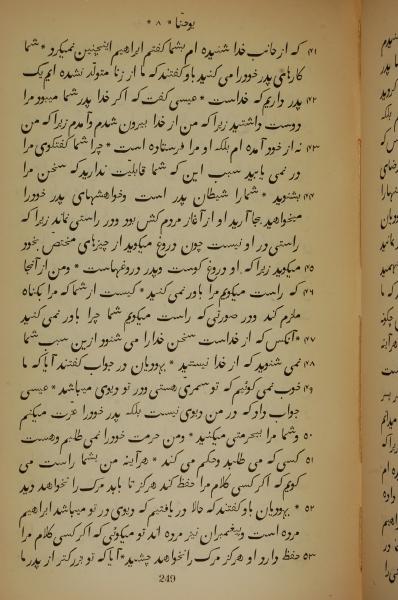 یوحنّا * ۸ *
که از جانب خدا شنیده ام بشما گفتم ابراهیم اینچنین نمیکرد * شما ۴۱
کارهای پدر خود را می کنید باو گفتند که ما از زنا متولّد نشده ایم یک
پدر داریم که خداست * عیسی گفت که اگر خدا پدر شما میبود مرا ۴۲
دوست داشتید زیرا که من از خدا بیرون شدم و آمدم زیرا که من
نه از خود آمده ام بلکه او مرا فرستاده است * چرا شما گفتگوی مرا ۴۳
در نمی یابید سبب این که شما قابلیّت ندارید که سخن مرا
بشنوید * شما را شیطان پدر است وخواهشهای پدر خود را ۴۴
میخواهید بجا آرید او از آغاز مردم کش بود ودر راستی نماند زیرا که
راستی در او نیست چون دروغ میکوید از چیزهای مختصّ بخود
میکوید زیرا که او دروغ کوست وپدر دروغهاست * ومن از آنجا ۴۵
که راست میکویم مرا باور نمی کنید * کیست از شما که مرا بکناه ۴۶
ملزم کند ودر صورتی که راست میکویم شما چرا باور نمی کنید
* آنکس که از خداست سخن خدا را می شنود ازین سبب شما ۴۷
نمی شنوید که از خدا نیستید * یهودیان در جواب کفتند آیا که ما ۴۸
خوب نمی کوئیم که تو سمری هستی ودر تو دیوی میباشد * عیسی ۴۹
جواب داد که در من دیوی نیست بلکه پدر خود را عزّت میکنم
وشما مرا بیحرمتی میکنید * ومن حرمت خود را نمی طلبم وهست ۵۰
کسی که می طلبد وحکم می کند * هرآینه من بشما راست می ۵۱
کویم که اکر کسی کلام مرا حفظ کند هرکز تا بابد مرک را نخواهد دید
* یهودیان باو کفتند که حالا دریافتیم که دیوی در تو میباشد ابراهیم ۵۲
مرده است وپیغمبران نیز مرده اند تو میکوئی که اکر کسی کلام مرا
حفظ دارد او هرکز مرک را نخواهد چشید * آیا که تو بزرکتر از پدر ما ۵۳
249